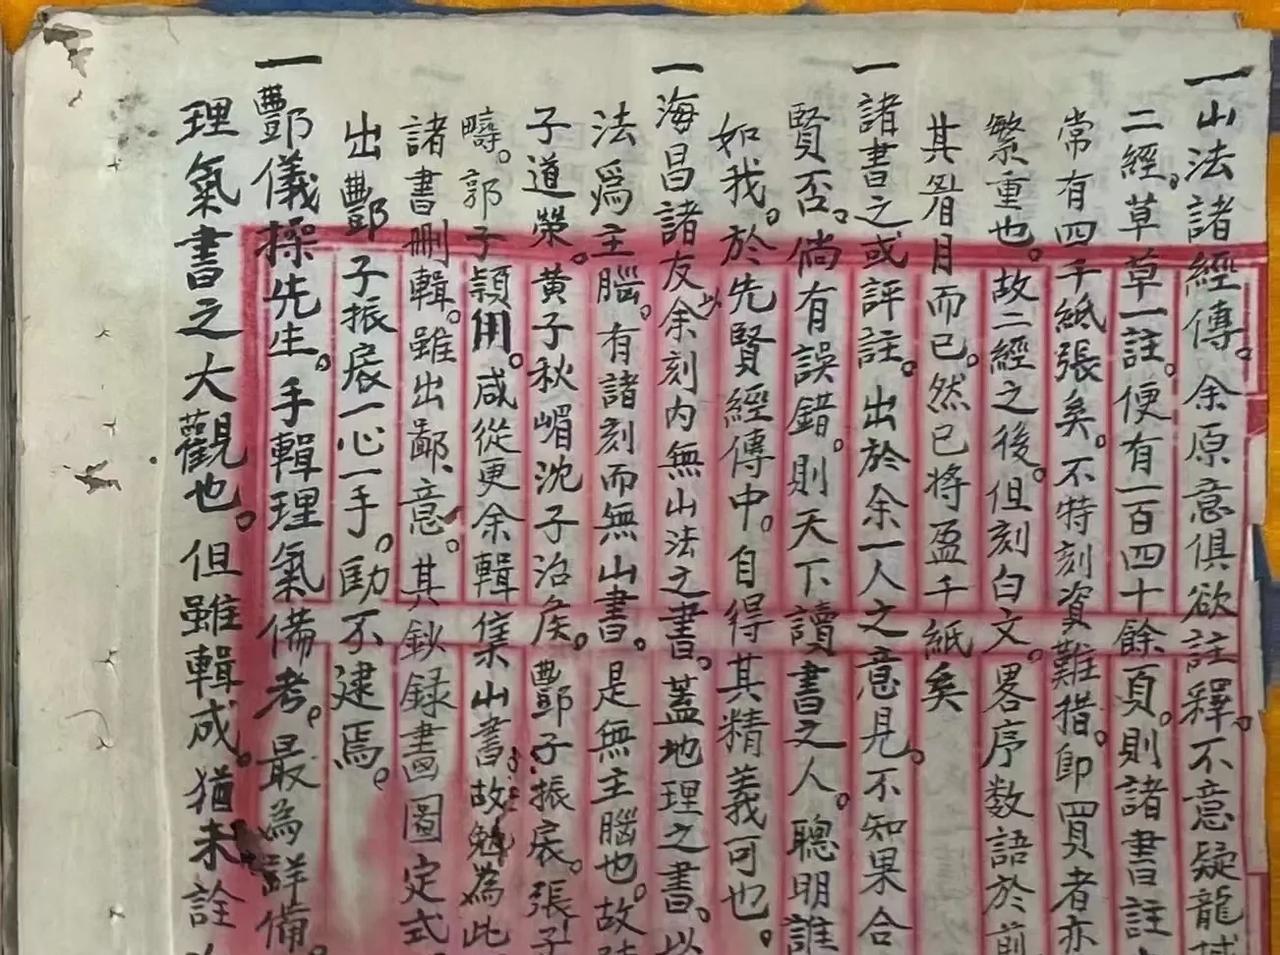 一山法諸經傳。余原意俱欲註釋。不意疑龍
二經。草草一註。便有一百四十餘頁。則諸書註
常有四千紙張矣。不特刻資難措。即買者亦
繁重也。故二經之後。但刻白文。畧序数語於前
其眉目而已。然已將盈千紙矣
一諸書之或評註。出於余一人之意見。不知果合
賢否。倘有誤錯。則天下讀書之人。聰明誰
如我。於先賢經傳中。自得其精義可也。
一海昌諸友以余刻内無山法之書。蓋地理之書。以
法爲主腦。有諸刻而無山書。是無主腦也。故
子道榮。黄子秋嵋沈子治矦。酆子振宸。張子
疇。郭子穎用。咸從更余輯集山書。故勉為此
諸書刪輯。雖出鄙意。其鈔録畫圖定式
出酆子振宸一心一手。劻不逮焉。
一酆儀操先生。手輯理氣備考。最為詳備。
理氣書之大觀也。但雖輯成。猶未詮